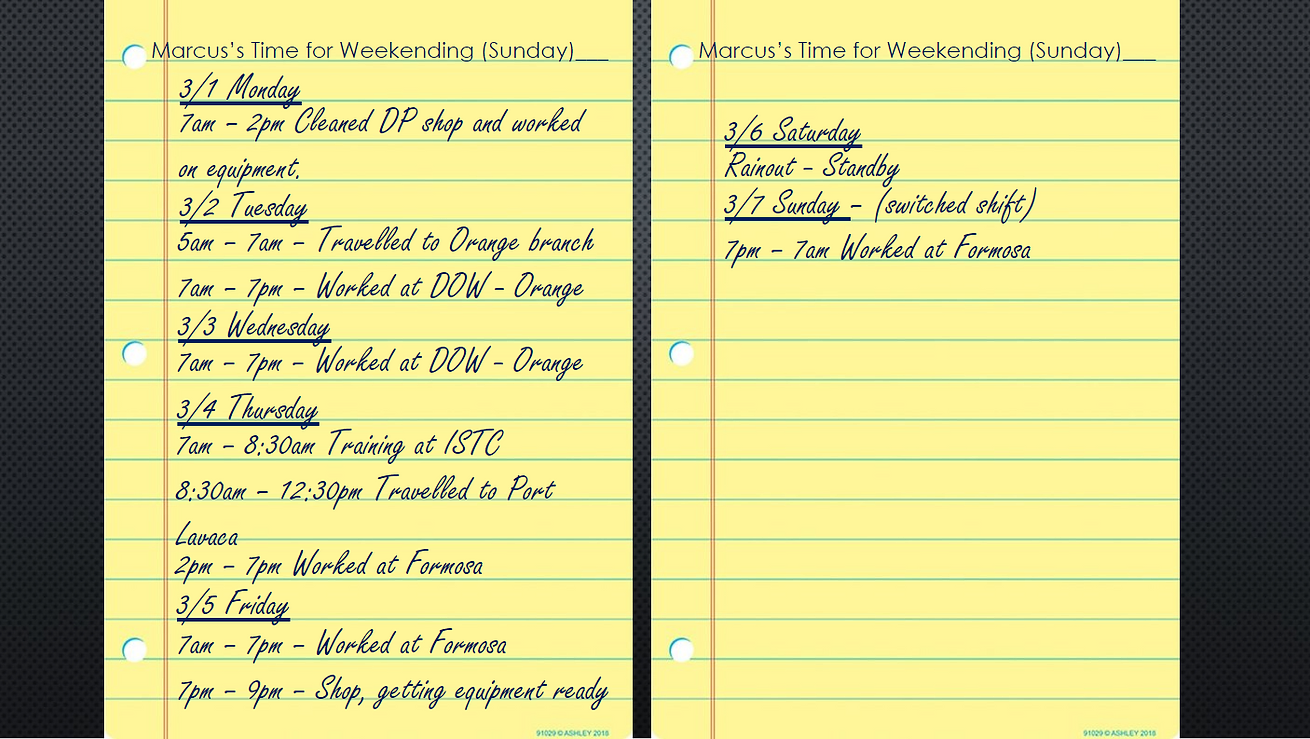 Marcus's Time for Weekending (Sunday)___
3/1 Monday
7am – 2pm Cleaned DP shop and worked
on equipment.
3/2 Tuesday
5am – 7am – Travelled to Orange branch
7am – 7pm – Worked at DOW – Orange
3/3 Wednesday
7am – 7pm – Worked at DOW – Orange
3/4 Thursday
7am – 8:30am Training at ISTC
8:30am – 12:30pm Travelled to Port
Lavaca
2pm – 7pm Worked at Formosa
3/5 Friday
7am – 7pm – Worked at Formosa
7pm – 9pm – Shop, getting equipment ready
91029 © ASHLEY 2018
Marcus's Time for Weekending (Sunday)___
3/6 Saturday
Rainout – Standby
3/7 Sunday – (switched shift)
7pm – 7am Worked at Formosa
91029 © ASHLEY 2018